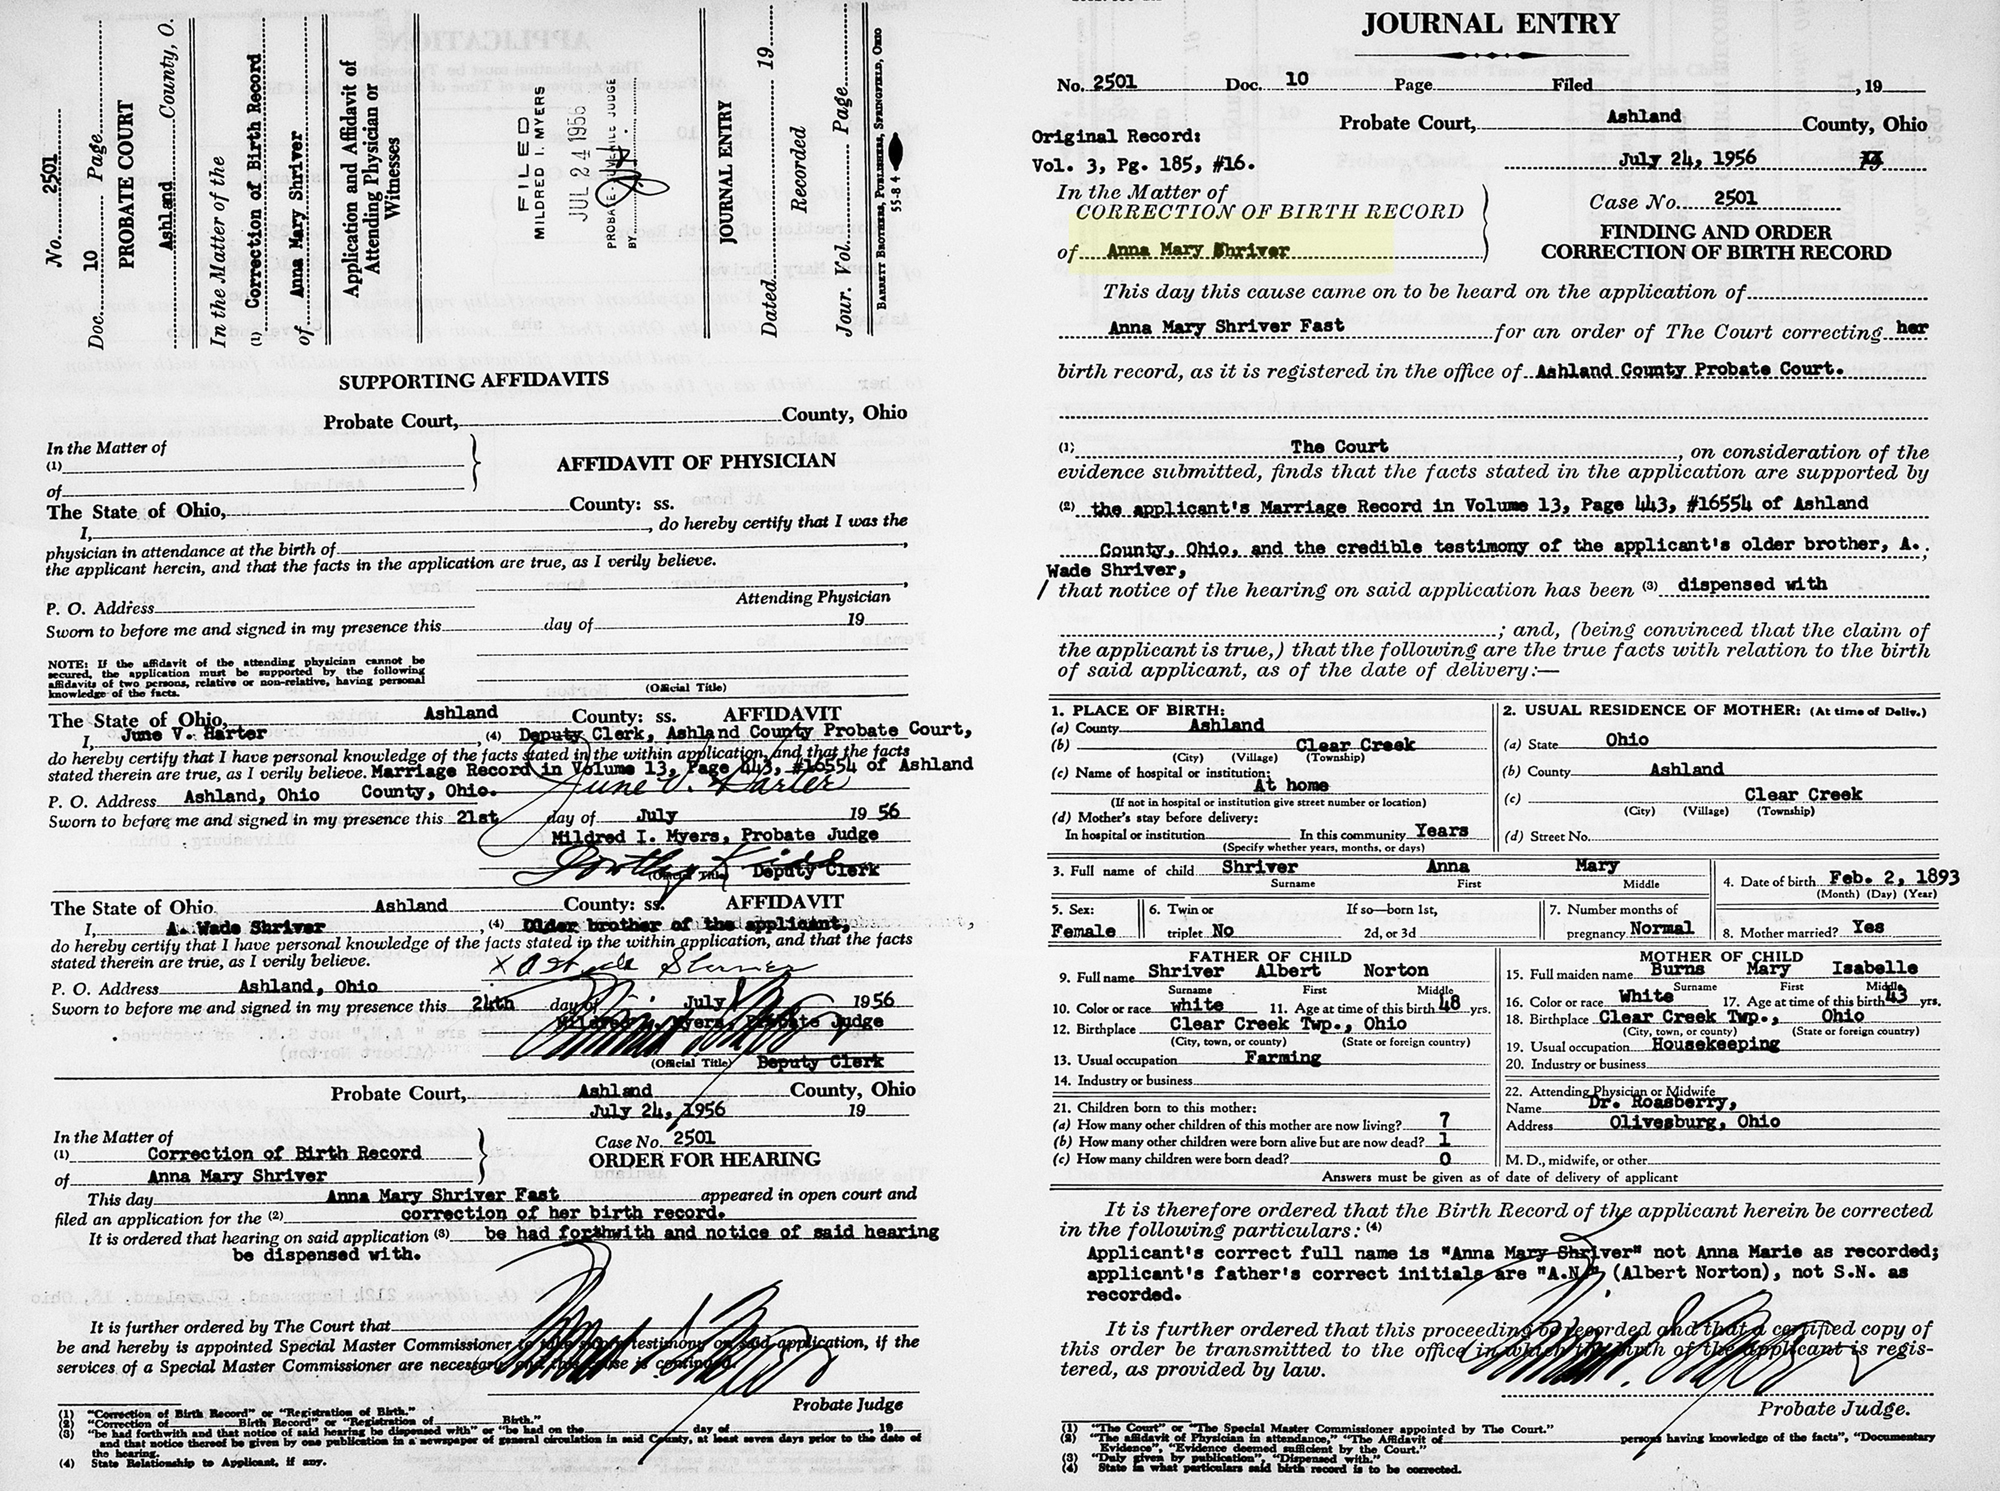 No. 2501
Doc. 10 Page
PROBATE COURT
Ashland County, O.
In the Matter of the
(1) Correction of Birth Record
of Anna Mary Shriver
Application and Affidavit of
Attending Physician or
Witnesses
FILED
MILDRED I. MYERS
JUL 24 1956
PROBATE-JUVENILE JUDGE
BY
JOURNAL ENTRY
Dated 19
Recorded
Jour. Vol. Page
BARRETT BROTHERS, PUBLISHERS, SPRINGFIELD, OHIO
55-8 4
SUPPORTING AFFIDAVITS
Probate Court, County, Ohio
In the Matter of
(1)
of
AFFIDAVIT OF PHYSICIAN
The State of Ohio, County: ss.
I, , do hereby certify that I was the
physician in attendance at the birth of ,
the applicant herein, and that the facts in the application are true, as I verily believe.
,
Attending Physician
P. O. Address
Sworn to before me and signed in my presence this day of 19
NOTE: If the affidavit of the attending physician cannot be
secured, the application must be supported by the following
affidavits of two persons, relative or non-relative, having personal
knowledge of the facts.
(Official Title)
The State of Ohio, Ashland County: ss. AFFIDAVIT
I, June V. Harter , (4) Deputy Clerk, Ashland County Probate Court,
do hereby certify that I have personal knowledge of the facts stated in the within application, and that the facts
stated therein are true, as I verily believe. Marriage Record in Volume 13, Page 443, #16554 of Ashland
June V. Harter
P. O. Address Ashland, Ohio County, Ohio.
Sworn to before me and signed in my presence this 21st day of July 19 56
Mildred I. Myers, Probate Judge
(Official Title) Deputy Clerk
The State of Ohio. Ashland County: ss. AFFIDAVIT
I, A. Wade Shriver , (4) Older brother of the applicant,
do hereby certify that I have personal knowledge of the facts stated in the within application, and that the facts
stated therein are true, as I verily believe.
P. O. Address Ashland, Ohio
Sworn to before me and signed in my presence this 24th day of July 19 56
Mildred I. Myers, Probate Judge
(Official Title) Deputy Clerk
Probate Court, Ashland County, Ohio
July 24, 1956 19
In the Matter of
(1) Correction of Birth Record
of Anna Mary Shriver
Case No. 2501
ORDER FOR HEARING
This day Anna Mary Shriver Fast appeared in open court and
filed an application for the (2) correction of her birth record.
It is ordered that hearing on said application (3) be had forthwith and notice of said hearing
be dispensed with.
It is further ordered by The Court that
be and hereby is appointed Special Master Commissioner to take such testimony on said application, if the
services of a Special Master Commissioner are necessary, and this cause is continued.
Probate Judge
(1) "Correction of Birth Record" or "Registration of Birth."
(2) "Correction of Birth Record" or "Registration of Birth."
(3) "be had forthwith and that notice of said hearing be dispensed with" or "be had on the day of , 19
and that notice thereof be given by one publication in a newspaper of general circulation in said County, at least seven days prior to the date of
the hearing.
(4) State Relationship to Applicant, if any.
JOURNAL ENTRY
No. 2501 Doc. 10 Page Filed , 19
Probate Court, Ashland County, Ohio
Original Record:
Vol. 3, Pg. 185, #16.
July 24, 1956 19
In the Matter of
CORRECTION OF BIRTH RECORD
of Anna Mary Shriver
Case No. 2501
FINDING AND ORDER
CORRECTION OF BIRTH RECORD
This day this cause came on to be heard on the application of
Anna Mary Shriver Fast for an order of The Court correcting her
birth record, as it is registered in the office of Ashland County Probate Court.
(1) The Court , on consideration of the
evidence submitted, finds that the facts stated in the application are supported by
(2) the applicant's Marriage Record in Volume 13, Page 443, #16554 of Ashland
County, Ohio, and the credible testimony of the applicant's older brother, A. ;
Wade Shriver,
/ that notice of the hearing on said application has been (3) dispensed with
; and, (being convinced that the claim of
the applicant is true,) that the following are the true facts with relation to the birth
of said applicant, as of the date of delivery:—
1. PLACE OF BIRTH:
(a) County Ashland
(b) Clear Creek
(City) (Village) (Township)
(c) Name of hospital or institution:
At home
(If not in hospital or institution give street number or location)
(d) Mother's stay before delivery:
In hospital or institution In this community Years
(Specify whether years, months, or days)
2. USUAL RESIDENCE OF MOTHER: (At time of Deliv.)
(a) State Ohio
(b) County Ashland
(c) Clear Creek
(City) (Village) (Township)
(d) Street No.
3. Full name of child Shriver Anna Mary
Surname First Middle
4. Date of birth Feb. 2, 1893
(Month) (Day) (Year)
5. Sex:
Female
6. Twin or If so—born 1st,
triplet No 2d, or 3d
7. Number months of
pregnancy Normal
8. Mother married? Yes
FATHER OF CHILD
9. Full name Shriver Albert Norton
Surname First Middle
10. Color or race white 11. Age at time of this birth 48 yrs.
12. Birthplace Clear Creek Twp., Ohio
(City, town, or county) (State or foreign country)
13. Usual occupation Farming
14. Industry or business
MOTHER OF CHILD
15. Full maiden name Burns Mary Isabelle
Surname First Middle
16. Color or race White 17. Age at time of this birth 43 yrs.
18. Birthplace Clear Creek Twp., Ohio
(City, town, or county) (State or foreign country)
19. Usual occupation Housekeeping
20. Industry or business
21. Children born to this mother:
(a) How many other children of this mother are now living? 7
(b) How many other children were born alive but are now dead? 1
(c) How many children were born dead? 0
22. Attending Physician or Midwife
Name Dr. Roasberry,
Address Olivesburg, Ohio
M. D., midwife, or other
Answers must be given as of date of delivery of applicant
It is therefore ordered that the Birth Record of the applicant herein be corrected
in the following particulars: (4)
Applicant's correct full name is "Anna Mary Shriver" not Anna Marie as recorded;
applicant's father's correct initials are "A.N." (Albert Norton), not S.N. as
recorded.
It is further ordered that this proceeding be recorded and that a certified copy of
this order be transmitted to the office in which the birth of the applicant is regis-
tered, as provided by law.
Probate Judge.
(1) "The Court" or "The Special Master Commissioner appointed by The Court."
(2) "The affidavit of Physician in attendance", "The Affidavit of persons having knowledge of the facts", "Documentary
Evidence", "Evidence deemed sufficient by the Court."
(3) "Duly given by publication", "Dispensed with."
(4) State in what particulars said birth record is to be corrected.